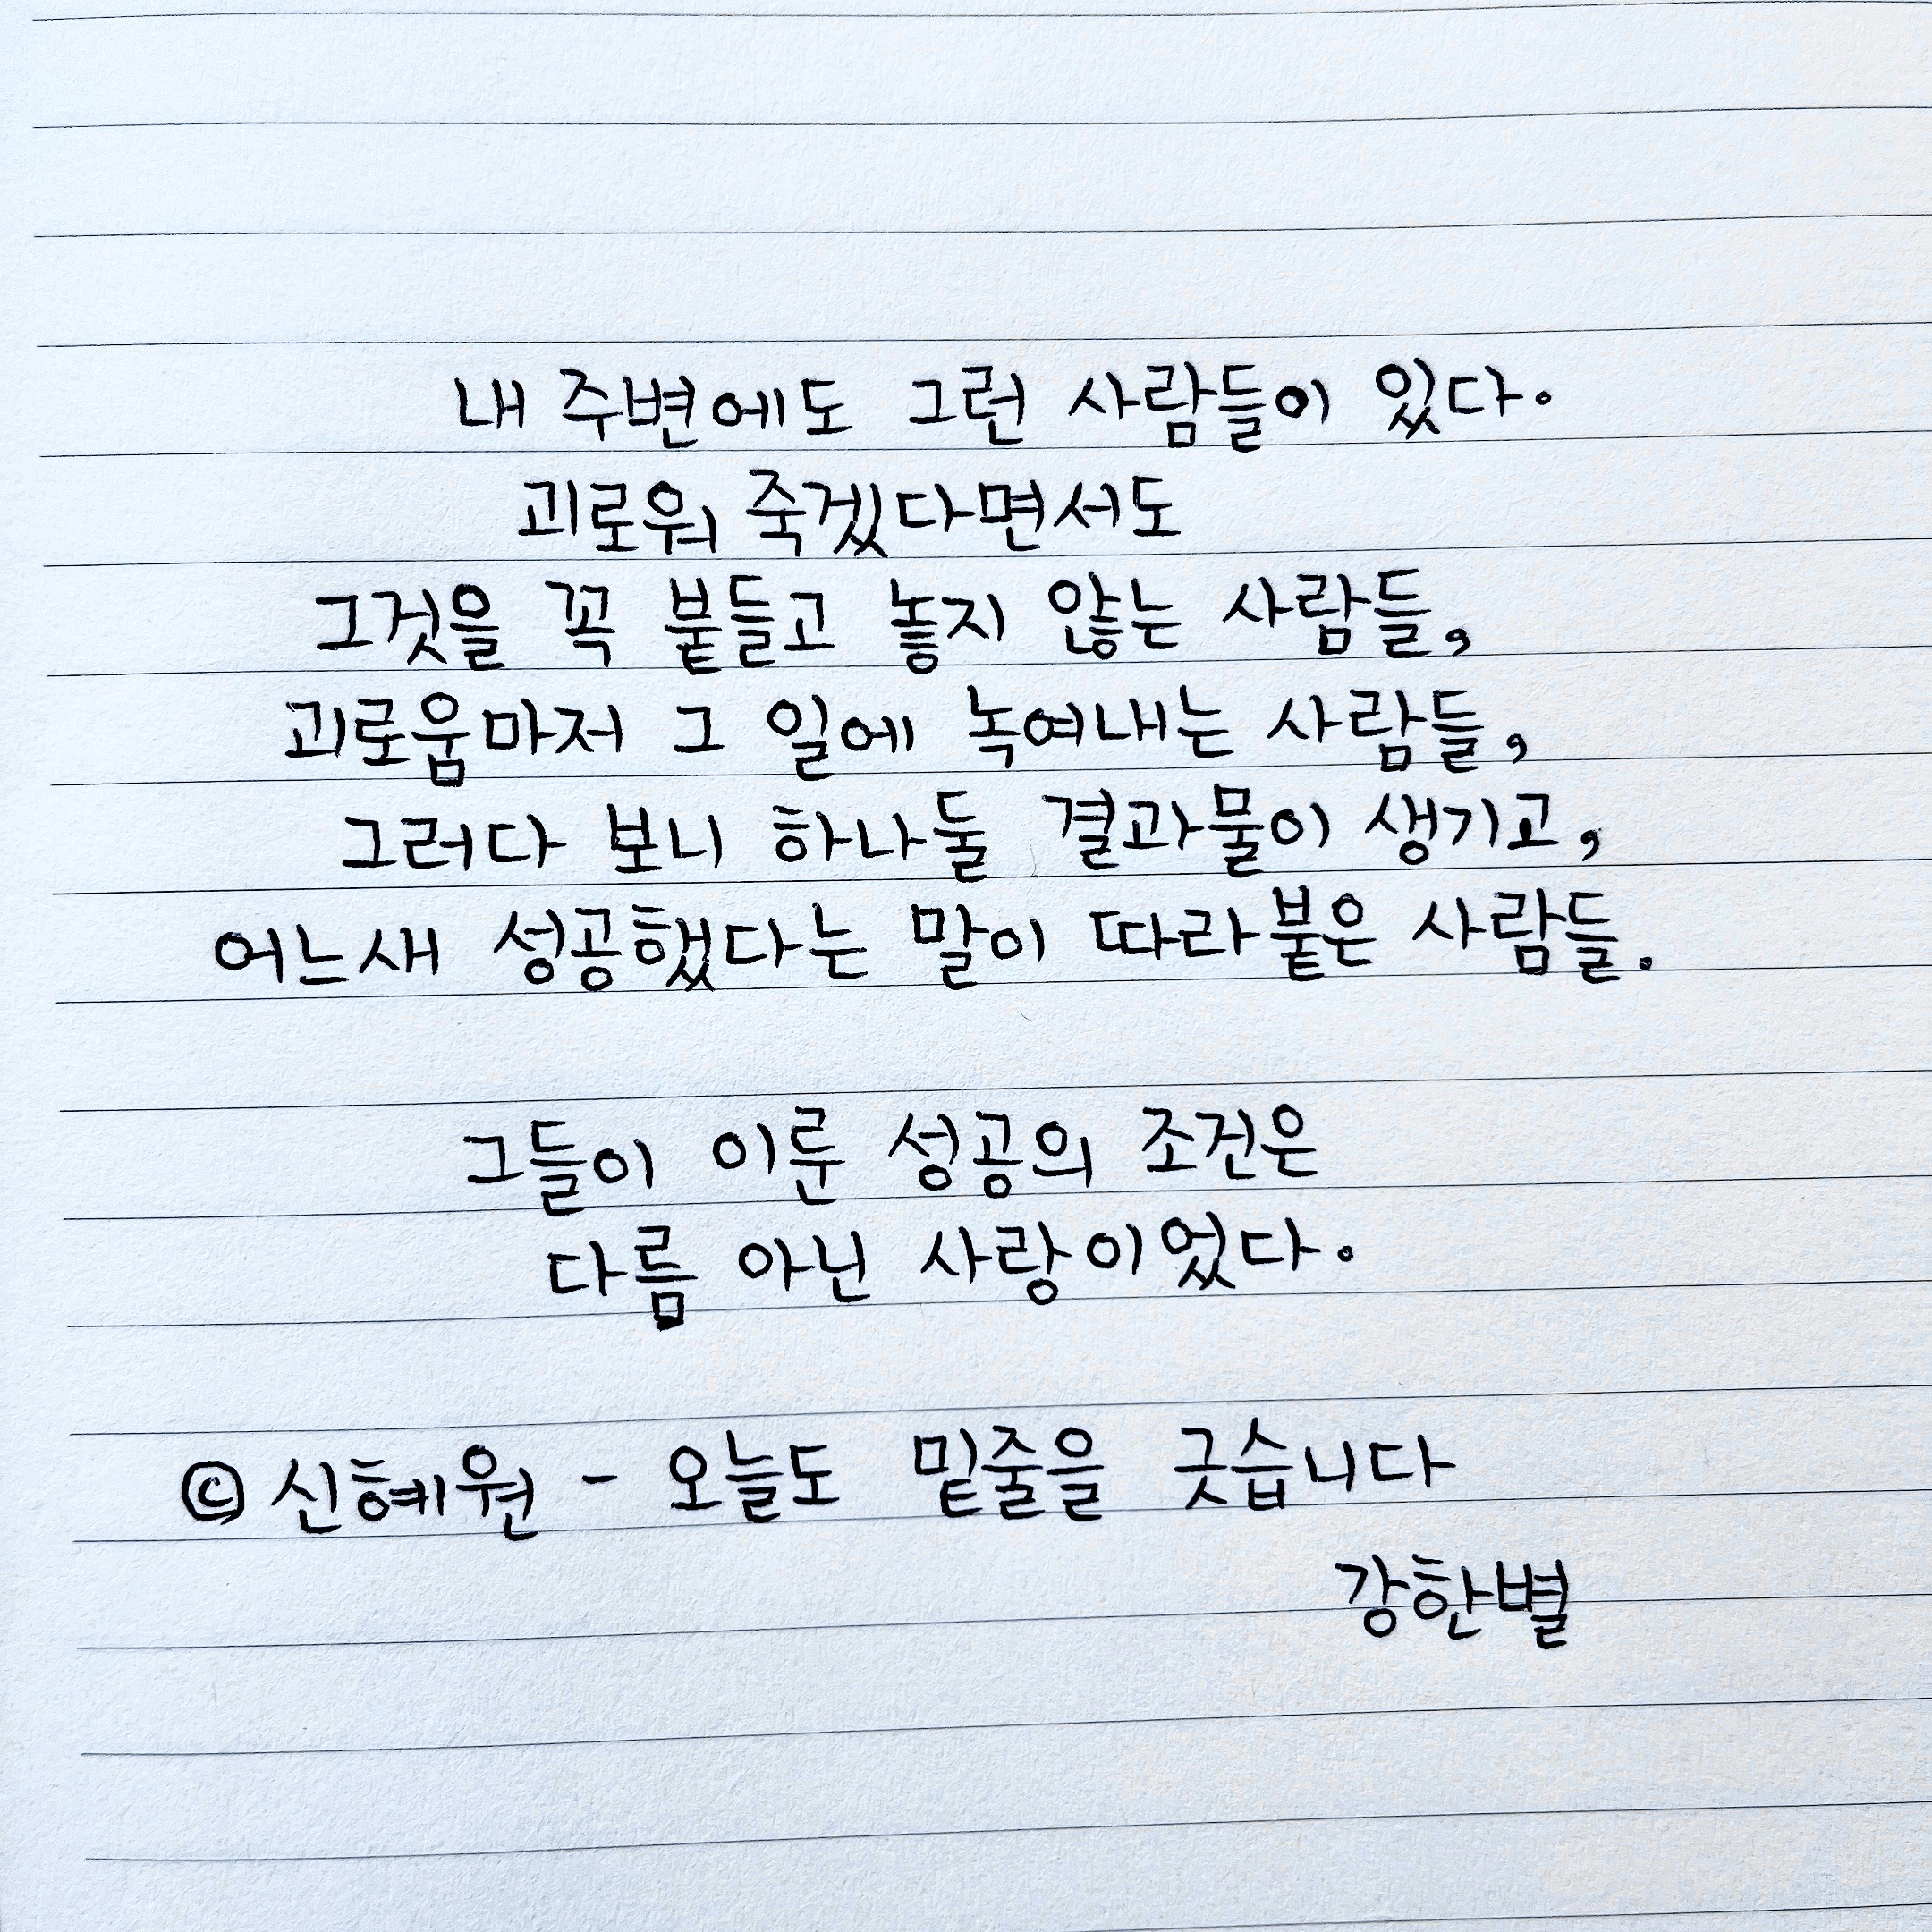 내 주변에도 그런 사람들이 있다.
괴로워 죽겠다면서도
그것을 꼭 붙들고 놓지 않는 사람들,
괴로움마저 그 일에 녹여내는 사람들,
그러다 보니 하나둘 결과물이 생기고,
어느새 성공했다는 말이 따라붙은 사람들.
그들이 이룬 성공의 조건은
다름 아닌 사랑이었다.
© 신혜원 - 오늘도 밑줄을 긋습니다
강한별